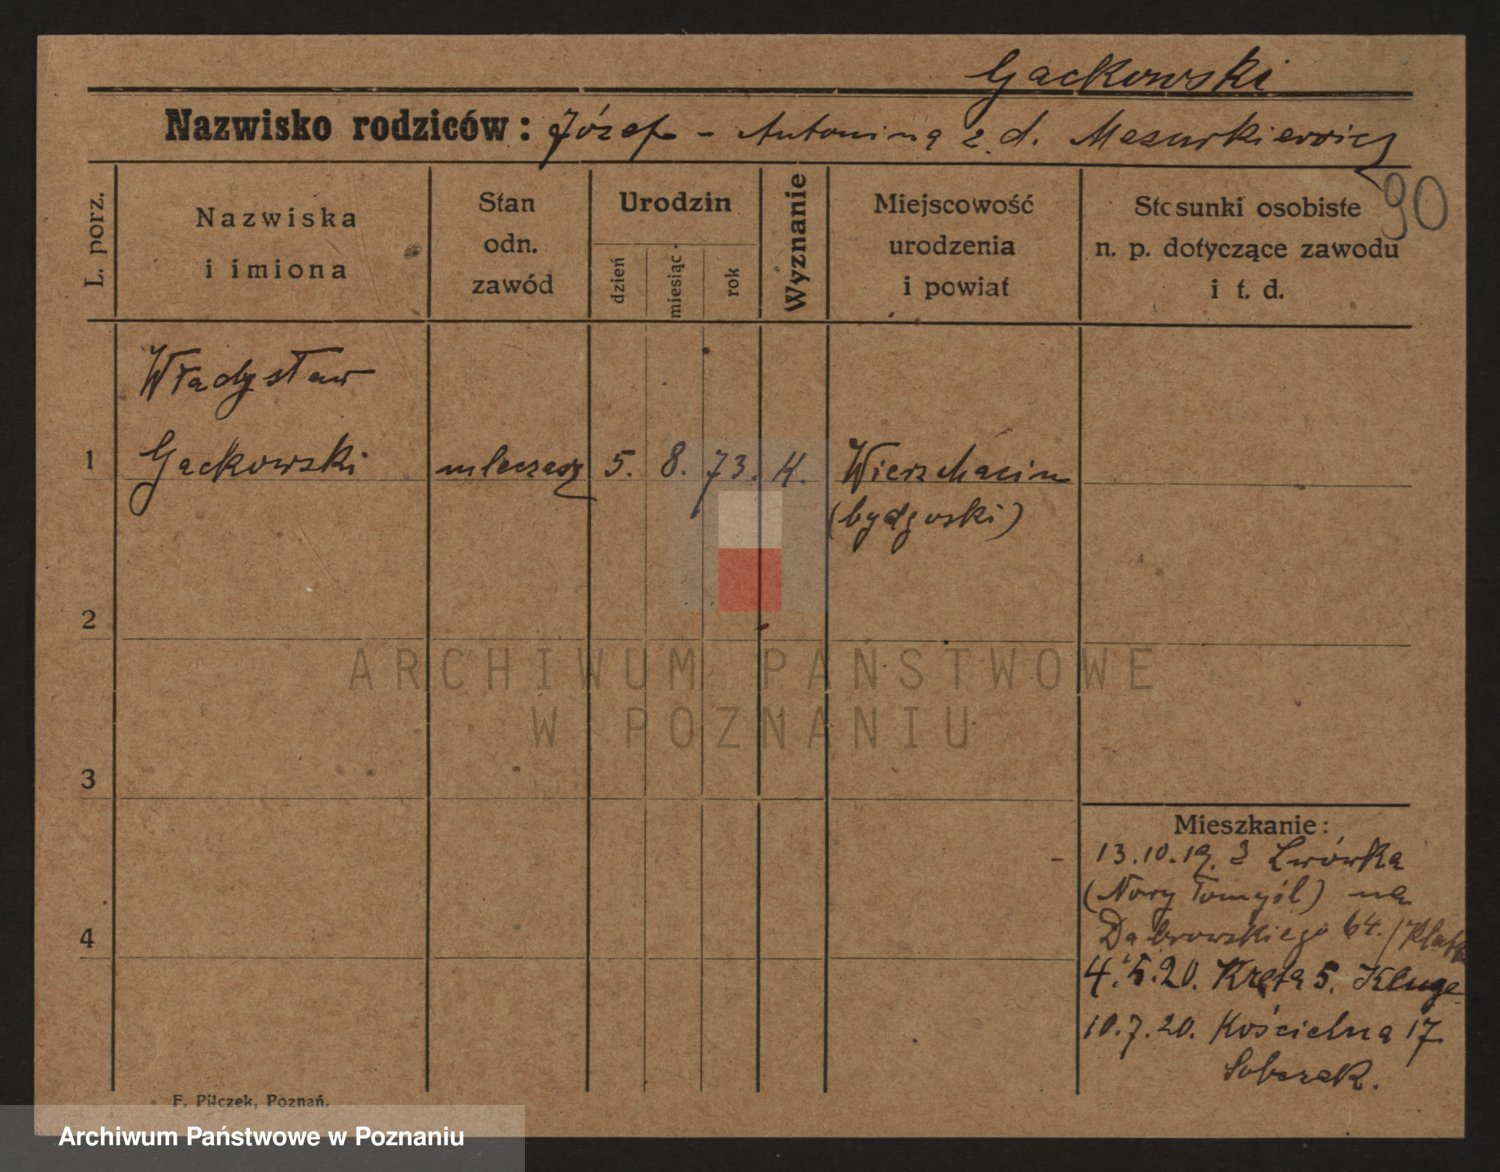 Gackowski
Nazwisko rodziców: Józef - Antonina z d. Mazurkiewicz
90
L. porz.
Nazwiska
i imiona
Stan
odn.
zawód
Urodzin
dzień
miesiąc
rok
Wyznanie
Miejscowość
urodzenia
i powiat
Stosunki osobiste
n. p. dotyczące zawodu
i t. d.
Władysław
1 Gackowski mleczarz 5. 8. 73. K. Wierzchucin
(bydgoski)
2
ARCHIWUM PAŃSTWOWE
W POZNANIU
3
Mieszkanie:
13.10.19. z Lwówka
(Nowy Tomyśl) na
Dąbrowskiego 64.
4
4.5.20. Kręta 5. Kluge
10.7.20. Kościelna 17
Sobczak.
F. Pilczek, Poznań.
Archiwum Państwowe w Poznaniu